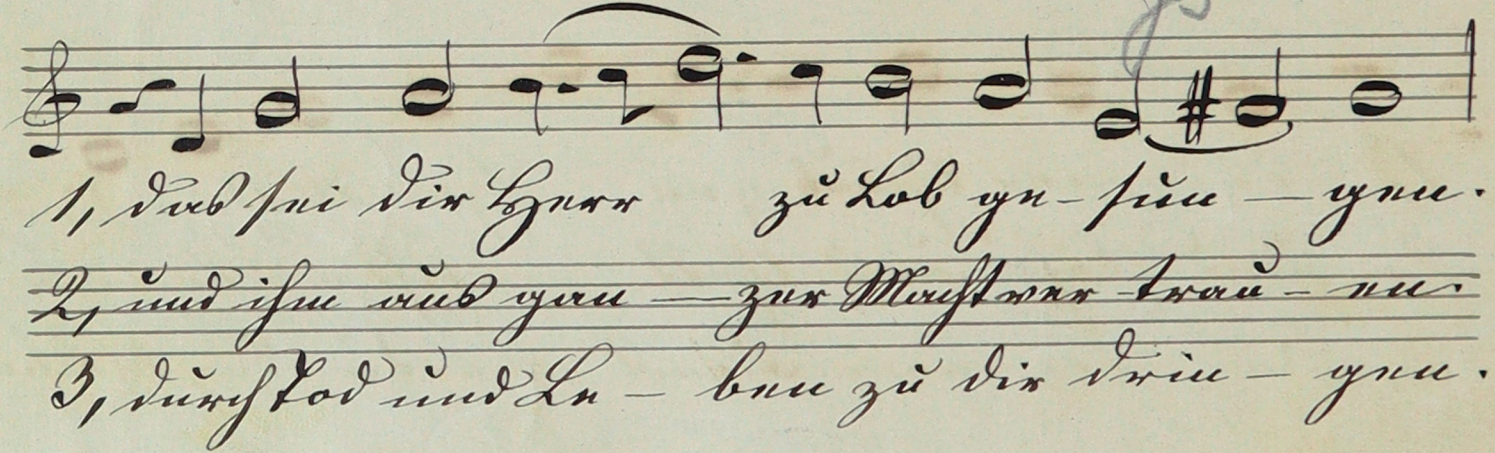 1, das sei dir Herr zu Lob ge-sun—gen.
2, und ihm aus gan—zer Macht ver trau-en.
3, durch Tod und Le-ben zu dir drin-gen.